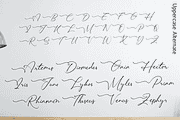 A B C D E F G H I
J K L M N O P Q R
S T U V W X Y Z
Uppercase Alternate
Artemis Diomedes Gaia Hector
Iris Juno Lykos Myles Priam
Rhiannon Theseus Venus Zephyr